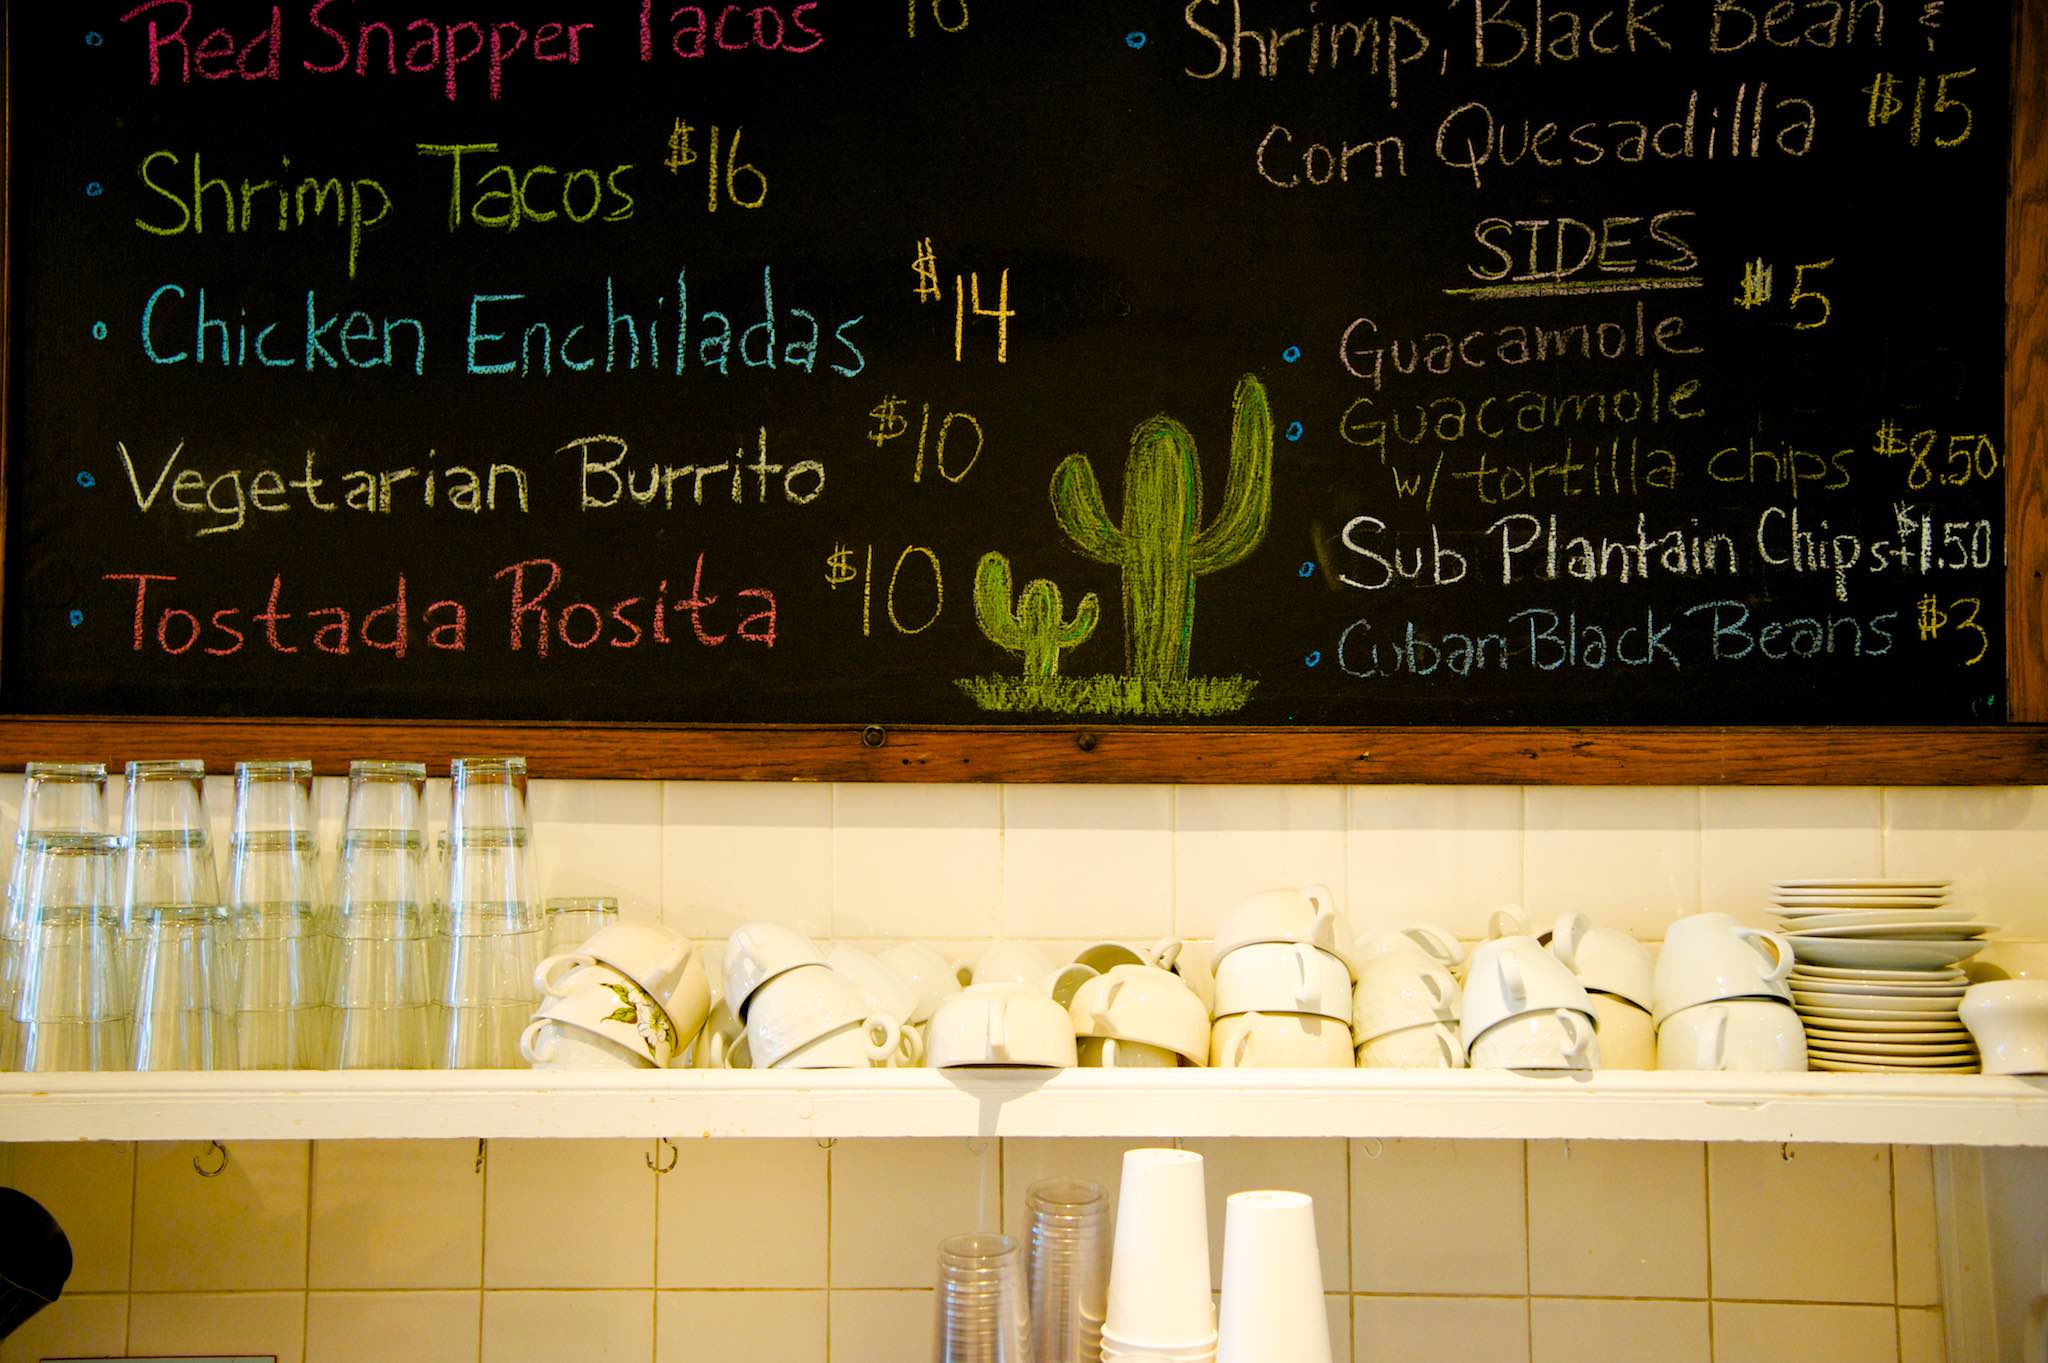 Red Snapper Tacos
Shrimp Tacos $16
Chicken Enchiladas $14
Vegetarian Burrito $10
Tostada Rosita $10
Shrimp, Black Bean &
Corn Quesadilla $15
SIDES
Guacamole $5
Guacamole
w/ tortilla chips $8.50
Sub Plantain Chips +$1.50
Cuban Black Beans $3